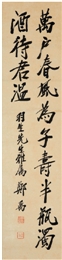 萬戶春風為子壽半瓶濁
酒待君溫
羽生先生雅屬 鄭 為